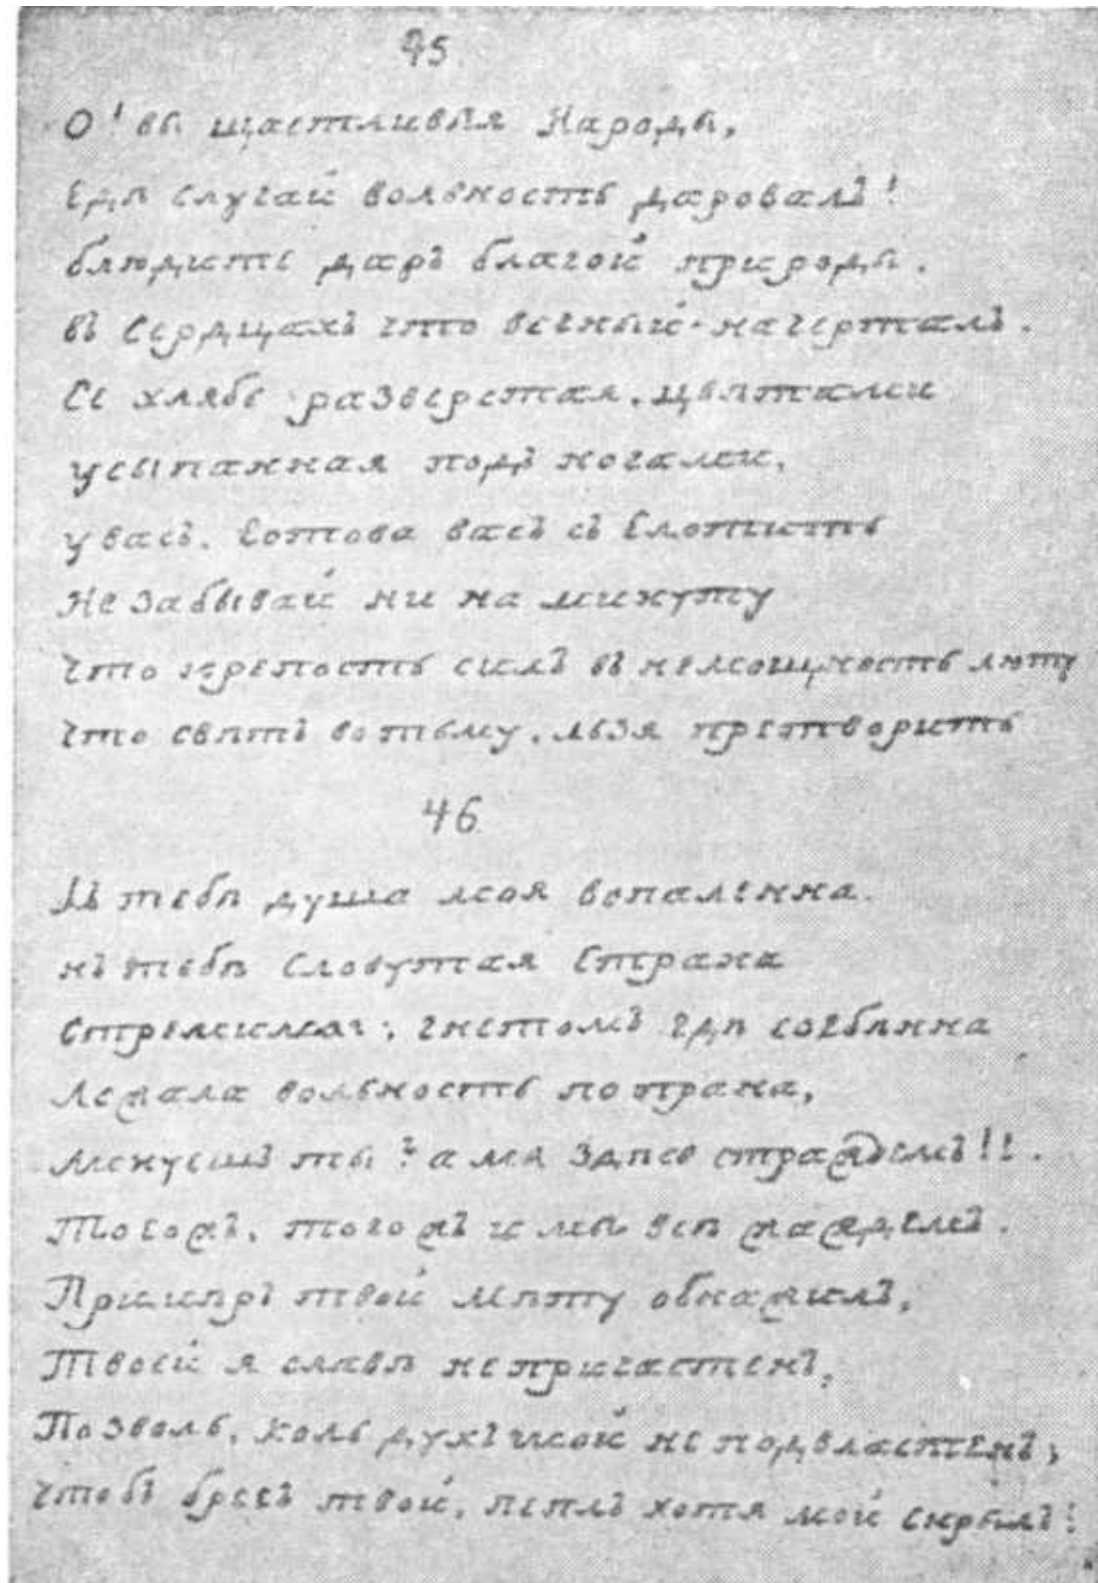 45.
О! вы щастливыя Народы,
Гдѣ случай вольность даровалъ!
блюдите даръ благой природы.
въ Сердцахъ что вечный начерталъ.
Се хлябь разверстая, цвѣтами
усыпанная подъ ногами,
у васъ. Готова васъ съ Глотить
Не забывай ни на минуту
Что крепость силъ въ немощность люту
Что свѣтъ во тьму, льзя претворить
46.
Къ тебѣ душа моя вспаленна.
къ тебѣ Словутая Страна
Стремилась; гнетомъ гдѣ согбѣнна
Лежала вольность попрана,
Ликуешъ ты? а мы здѣсь страждемъ!!.
Тогожъ, тогожъ и мы всѣ жаждемъ.
Примѣръ твой Мѣту обнажилъ,
Твоей я славѣ непричастенъ,
Позволь, коль духъ мой не подвластенъ,
Чтобъ брегъ твой, пеплъ хотя мой скрылъ!